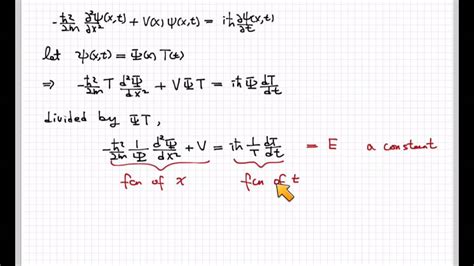 -ħ²/2m ∂²ψ(x,t)/∂x² + V(x) ψ(x,t) = iħ ∂ψ(x,t)/∂t
let ψ(x,t) = Ψ(x) T(t)
⇒ -ħ²/2m T d²Ψ/dx² + VΨT = iħ Ψ dT/dt
divided by ΨT,
-ħ²/2m 1/Ψ d²Ψ/dx² + V = iħ 1/T dT/dt = E a constant
fcn of x fcn of t